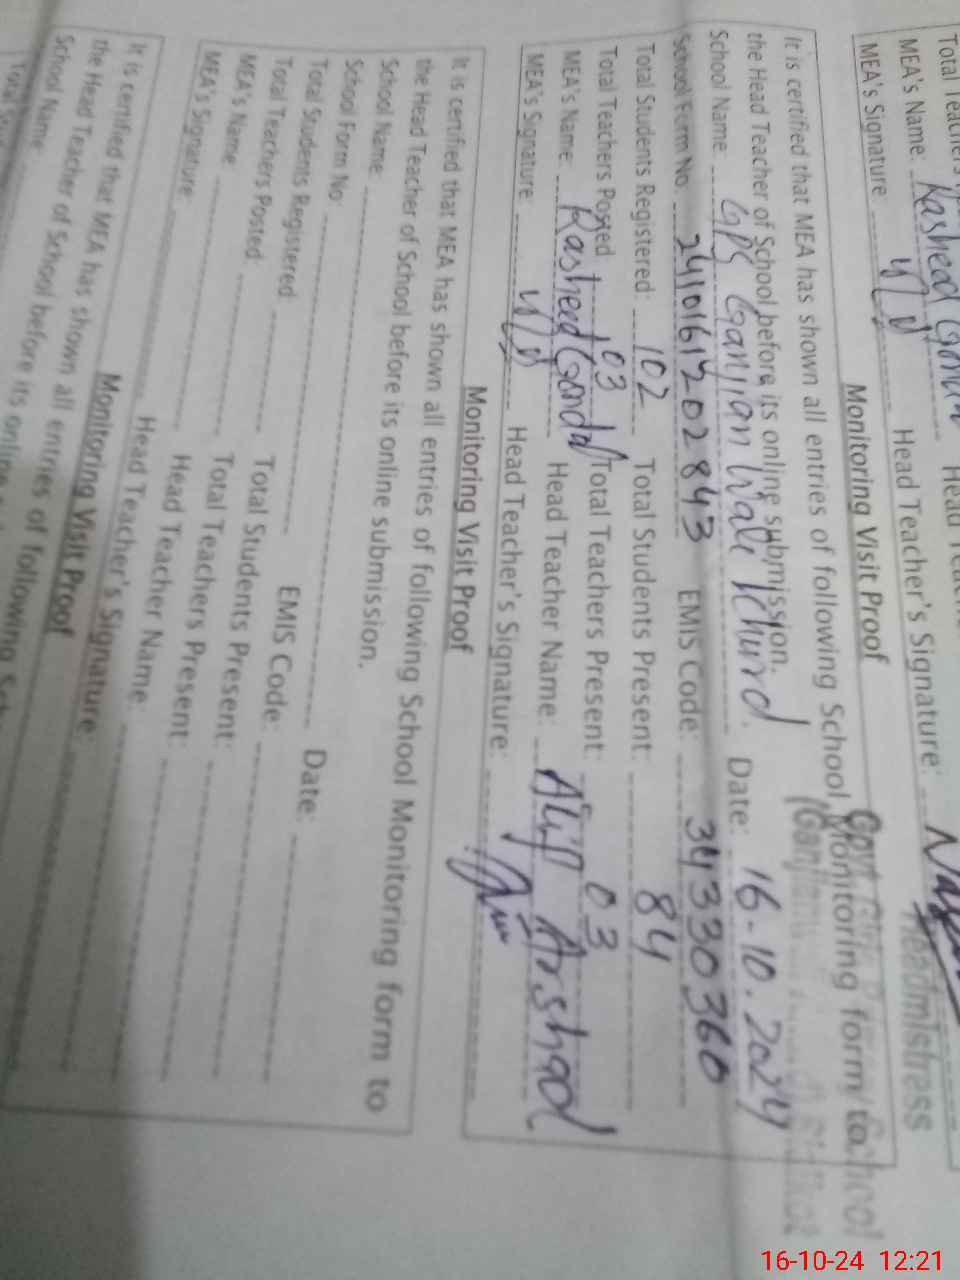 Total Teachers
MEA's Name: Rasheed Head
MEA's Signature Head Teacher's Signature:
Headmistress
Monitoring Visit Proof
It is certified that MEA has shown all entries of following School Monitoring form to
the Head Teacher of School before its online submission.
School Name: GPS Ganjian Wali Khurd Date: 16-10-2024
School Form No. 241016172 02843 EMIS Code: 34330360
Total Students Registered: 102 Total Students Present: 84
Total Teachers Posted 03 Total Teachers Present: 03
MEA's Name: Rasheed Gondal Head Teacher Name: Arshad
MEA's Signature Head Teacher's Signature:
Monitoring Visit Proof
It is certified that MEA has shown all entries of following School Monitoring form to
the Head Teacher of School before its online submission.
School Name: Date:
School Form No EMIS Code:
Total Students Registered: Total Students Present:
Total Teachers Posted: Total Teachers Present:
MEA's Name Head Teacher Name:
MEA's Signature Head Teacher's Signature:
Monitoring Visit Proof
It is certified that MEA has shown all entries of following
the Head Teacher of School before its online
School Name
16-10-24 12:21